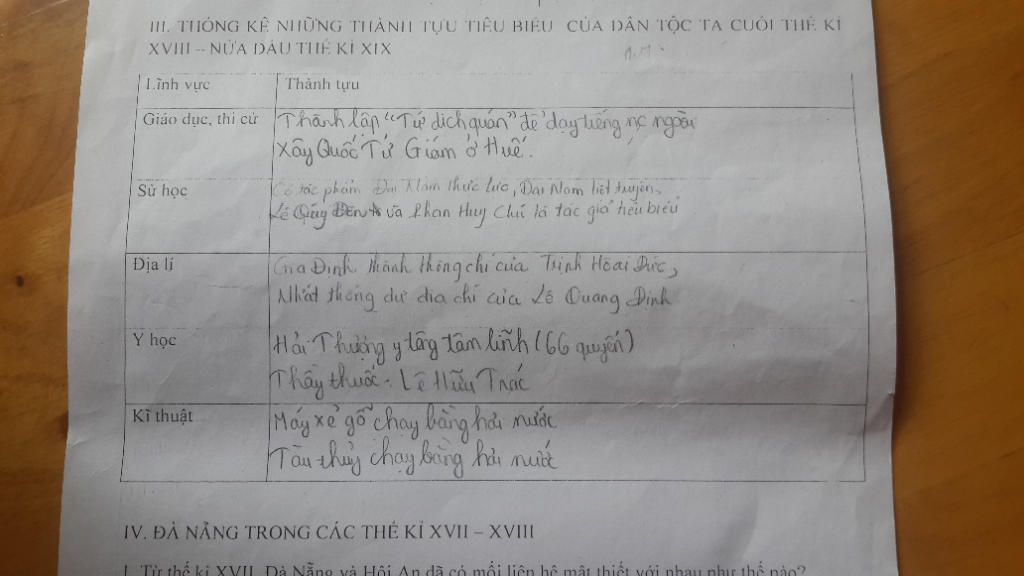 III. THỐNG KÊ NHỮNG THÀNH TỰU TIÊU BIỂU CỦA DÂN TỘC TA CUỐI THẾ KỈ
XVIII – NỬA ĐẦU THẾ KỈ XIX
Lĩnh vực Thành tựu
Giáo dục, thi cử Thành lập "Tứ dịch quán" để dạy tiếng nc ngoài
Xây Quốc Tử Giám ở Huế.
Sử học Có tác phẩm Đại Nam thực lục, Đại Nam liệt truyện,
Lê Quý Đôn và Phan Huy Chú là tác giả tiêu biểu
Địa lí Gia Định thành thông chí của Trịnh Hoài Đức,
Nhất thống dư địa chí của Lê Quang Định
Y học Hải Thượng y tông tâm lĩnh (66 quyển)
Thầy thuốc: Lê Hữu Trác
Kĩ thuật Máy xẻ gỗ chạy bằng hơi nước
Tàu thủy chạy bằng hơi nước
IV. ĐÀ NẴNG TRONG CÁC THẾ KỈ XVII – XVIII
1. Từ thế kỉ XVII, Đà Nẵng và Hội An đã có mối liên hệ mật thiết với nhau như thế nào?